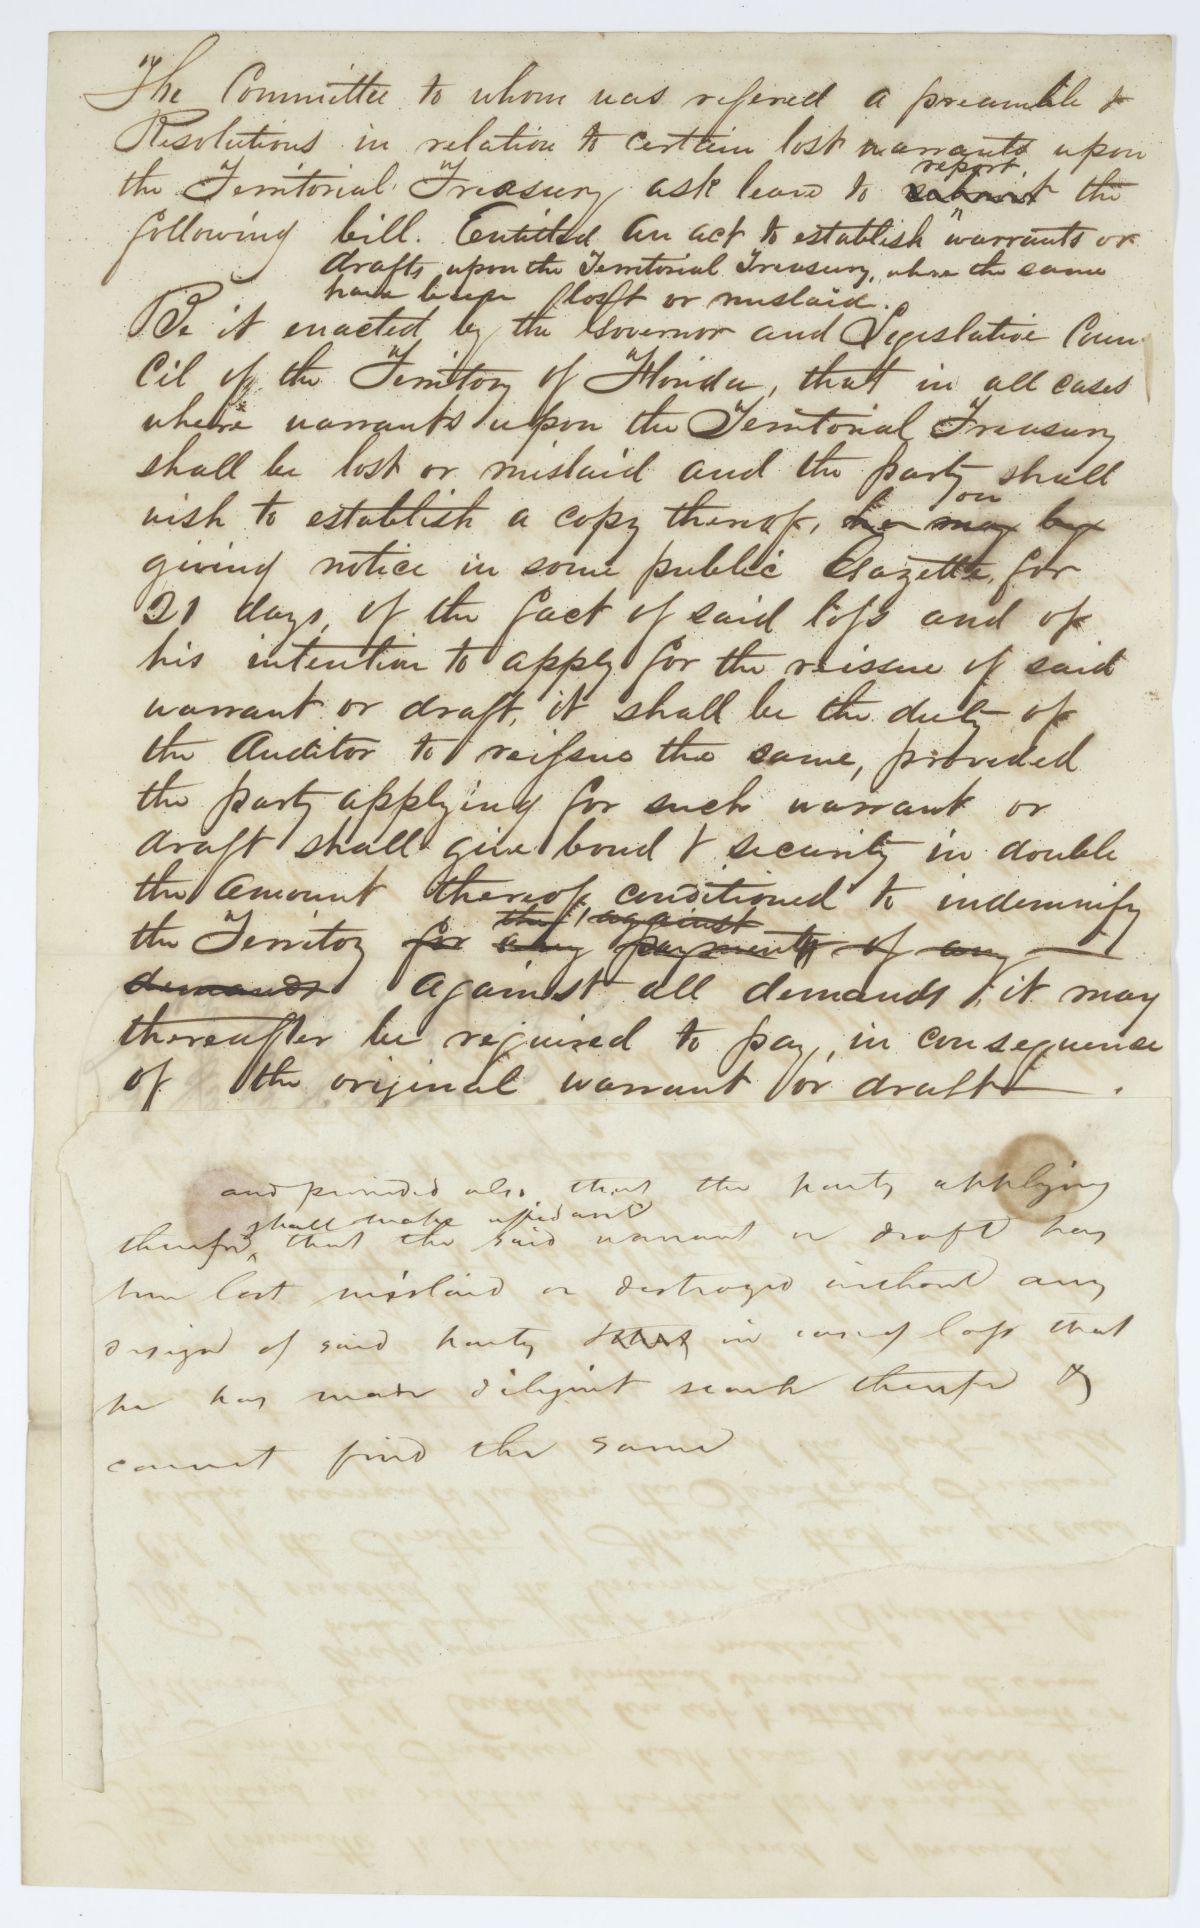 The Committee to whom was refered a preamble &
Resolutions in relation to certain lost warrants upon
the Territorial Treasury ask leave to submit report the
following bill. Entitled An act to establish warrants or
drafts upon the Territorial Treasury, where the same
have been lost or mislaid.
Be it enacted by the Governor and Legislative Coun-
cil of the Territory of Florida, that in all cases
where warrants upon the Territorial Treasury
shall be lost or mislaid and the party shall
wish to establish a copy thereof, he may by on
giving notice in some public Gazette, for
21 days, of the fact of said loss and of
his intention to apply for the reissue of said
warrant or draft, it shall be the duty of
the Auditor to reissue the same, provided
the party applying for such warrant or
draft shall give bond & security in double
the amount thereof, conditioned to indemnify
the Territory for any the, against payments of any
demands against all demands, it may
thereafter be required to pay, in consequense
of the original warrant or draft .
and provided also that the party applying
therefor shall make affidavit that the said warrant or draft has
been lost mislaid or destroyed without any
design of said party & in case of loss that
he has made diligent search therefor &
cannot find the same